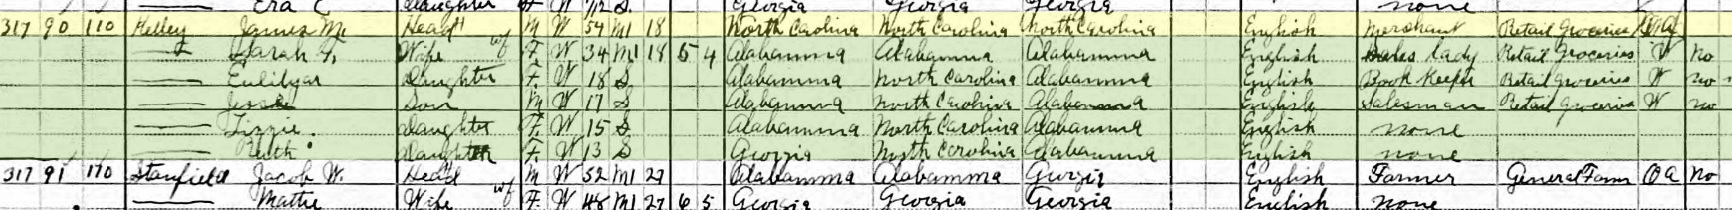 Era C Daughter F W 12 S Georgia Georgia Georgia none
317 90 110 Kelley James M. Head M W 54 M1 18 North Carolina North Carolina North Carolina English Merchant Retail Groceries
Sarah F. Wife F. W 34 M1 18 5 4 Alabamma Alabamma Alabamma English Sales Lady Retail Groceries W No
Daughter F. W 18 S Alabamma North Carolina Alabamma English Book Keeper Retail Groceries W no
Jesse Son M W 17 S Alabamma North Carolina Alabamma English Salesman Retail Groceries W no
Lizzie. Daughter F. W 15 S. Alabamma North Carolina Alabamma English none
Ruth Daughter F. W 13 S Georgia North Carolina Alabamma English none
317 91 110 Stanfield Jacob W. Head wf M W 52 M1 27 Alabamma Alabamma Georgia English Farmer General Farm OA No
Mattie Wife F. W 48 M1 27 6 5 Georgia Georgia Georgia English none